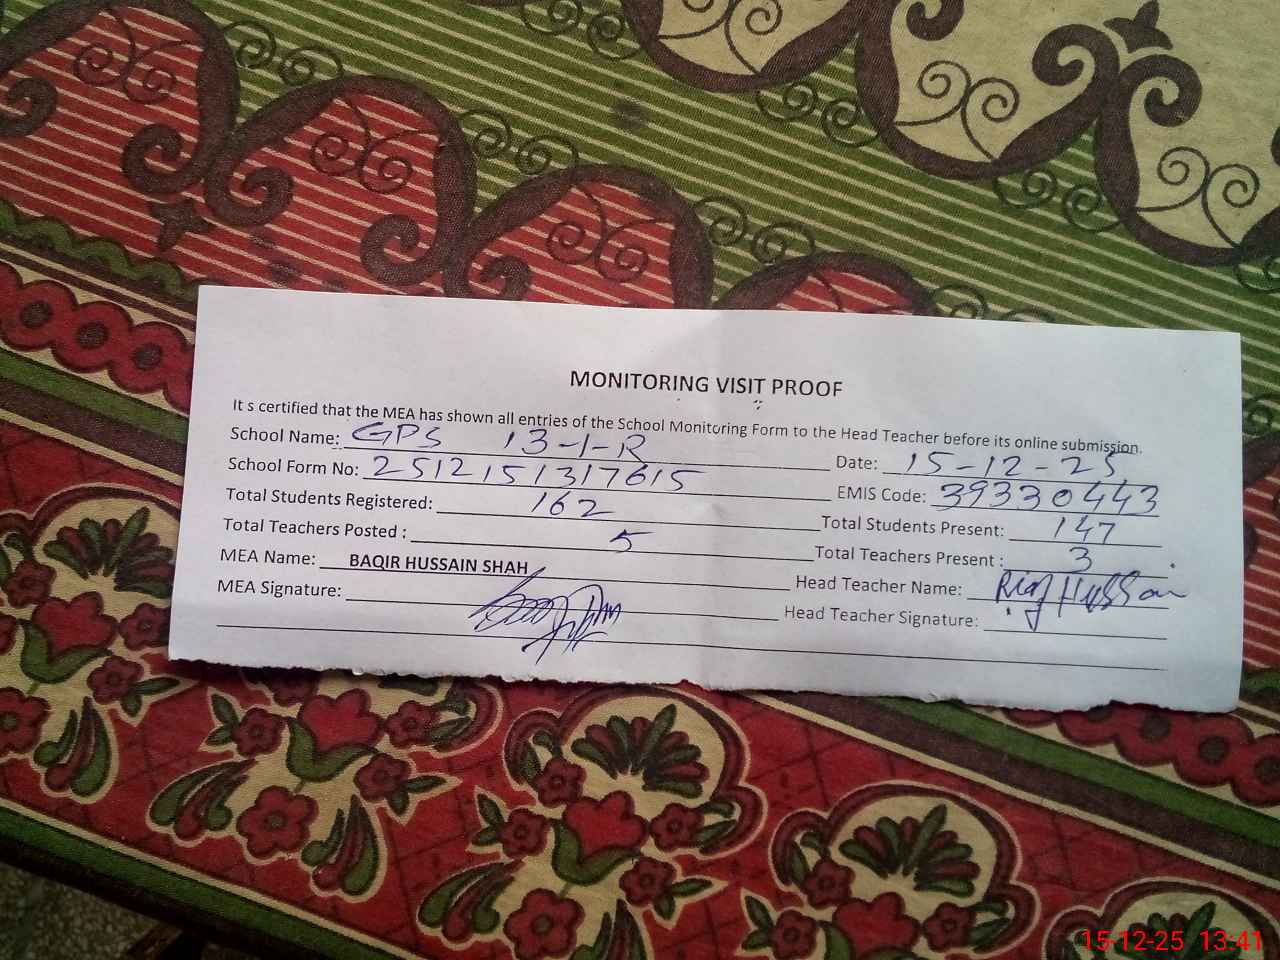 MONITORING VISIT PROOF
It s certified that the MEA has shown all entries of the School Monitoring Form to the Head Teacher before its online submission.
School Name: GPS 13-1-R Date: 15-12-25
School Form No: 2512151317615 EMIS Code: 39330443
Total Students Registered: 162 Total Students Present: 147
Total Teachers Posted : 5 Total Teachers Present : 3
MEA Name: BAQIR HUSSAIN SHAH Head Teacher Name: Riaz Hussain
MEA Signature: Head Teacher Signature:
15-12-25 13:41